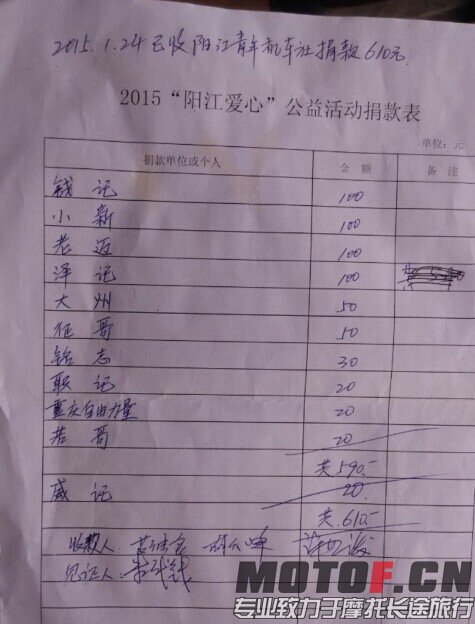 2015.1.24已收阳江青年机车社捐款610元.
2015“阳江爱心”公益活动捐款表
单位：元
捐款单位或个人 金额 备注
钱记 100
小新 100
老迈 100
泽记 100
大州 50
征哥 50
铭志 30
联记 20
重庆自由力量 20
若哥 20
共590.-
威记 20.
共.610.-
收款人:
见证人:
MOTOF.CN
专业致力于摩托长途旅行